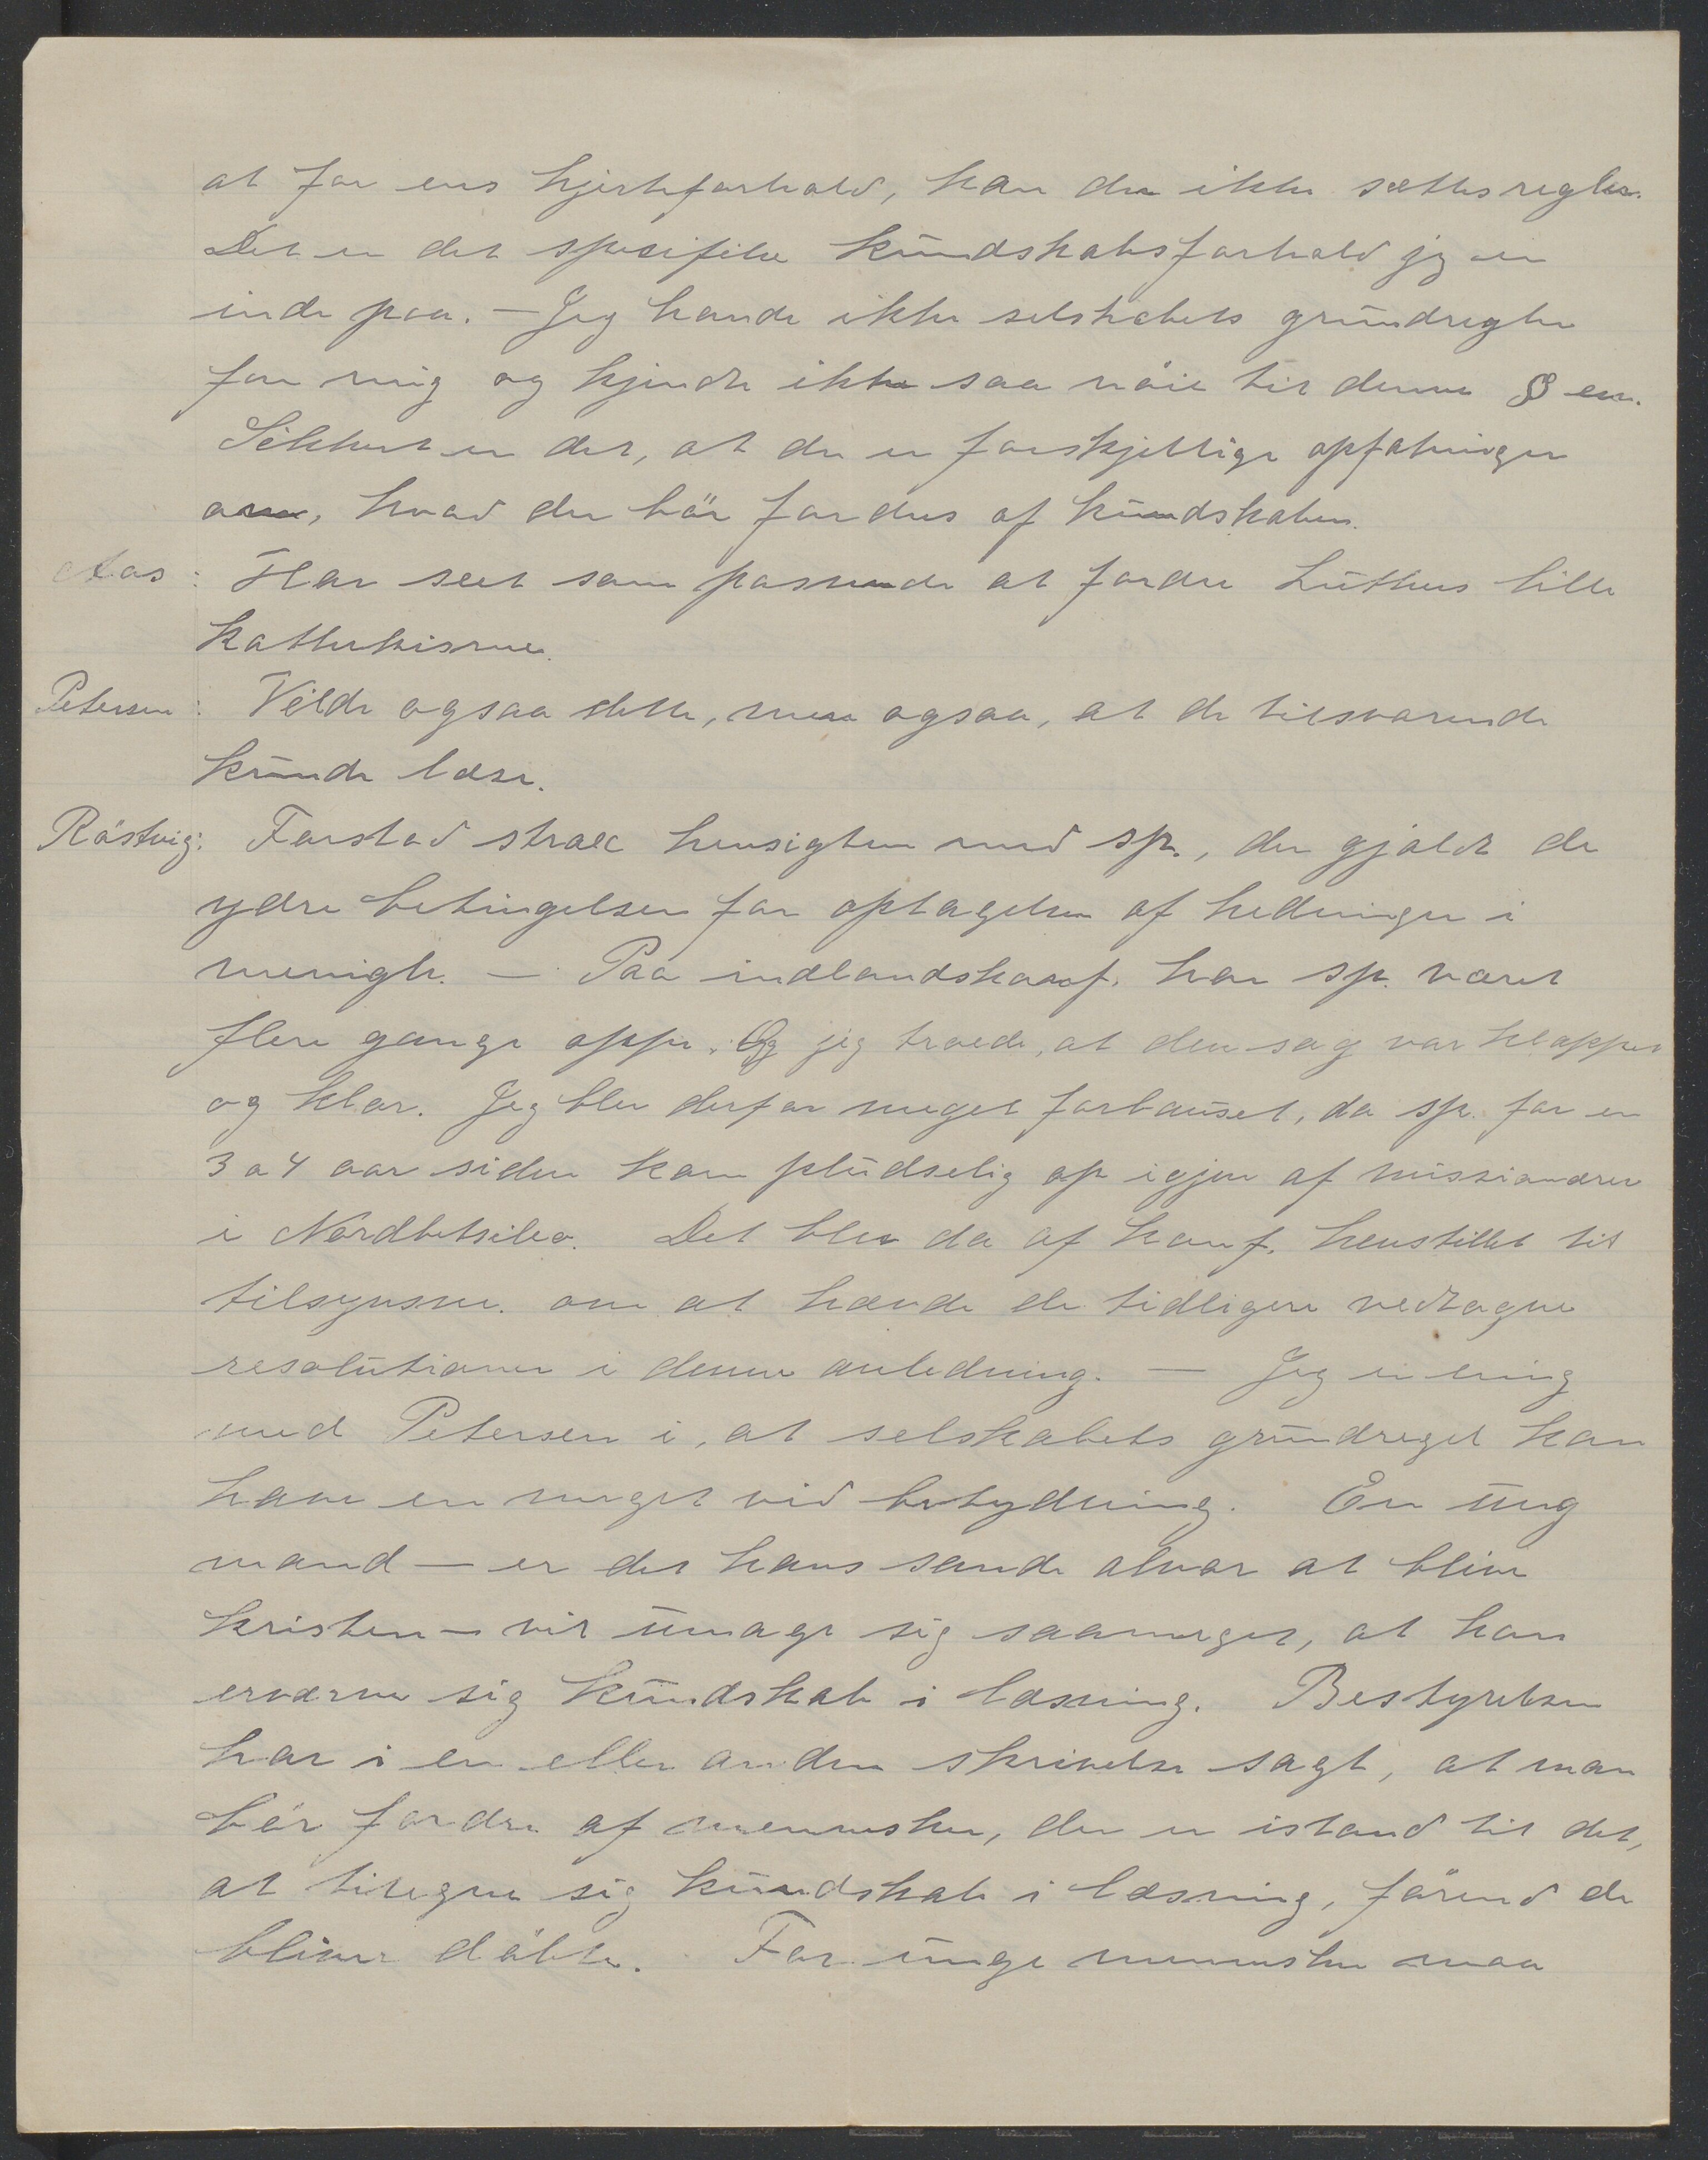 at for ens hjerteforhold, kan der ikke sættes regler.
Det er det spesifike kundskabsforhold jeg er
inde paa. — Jeg havde ikke selskabets grundregler
for mig og kjendte ikke saa nöie til denne § en.
Sikkert er det, at der er forskjellige opfatninger
om, hvad der bör fordres af kundskaber.
Aas: Har seet som passende at fordre Luthers lille
kathekisme.
Petersen: Vilde ogsaa dette, men ogsaa, at de tilsvarende
kunde læse.
Röstvig: Forstod strax hensigten med sp., der gjaldt de
ydre betingelser for optagelsen af hedninger i
menigh. — Paa indlandskonf. har sp. været
flere gange oppe. Og jeg troede, at den sag var klappet
og klar. Jeg blev derfor meget forbauset, da sp. for en
3 a 4 aar siden kom pludselig op igjen af missionærer
i Nordbetsileo. Det blev da af konf. henstillet til
tilsynsm. om at hævde de tidligere vedtagne
resolutioner i denne anledning. — Jeg er enig
med Petersen i, at selskabets grundregel kan
have en meget vid betydning. En ung
mand — er det hans sande alvor at blive
kristen — vil umage sig saameget, at han
erværve sig kundskab i læsning. Bestyrelsen
har i en eller anden skrivelse sagt, at man
bör fordre af mennesker, der er istand til det,
at tilegne sig kundskab i læsning, förend de
bliver döbte. For unge mennesker maa